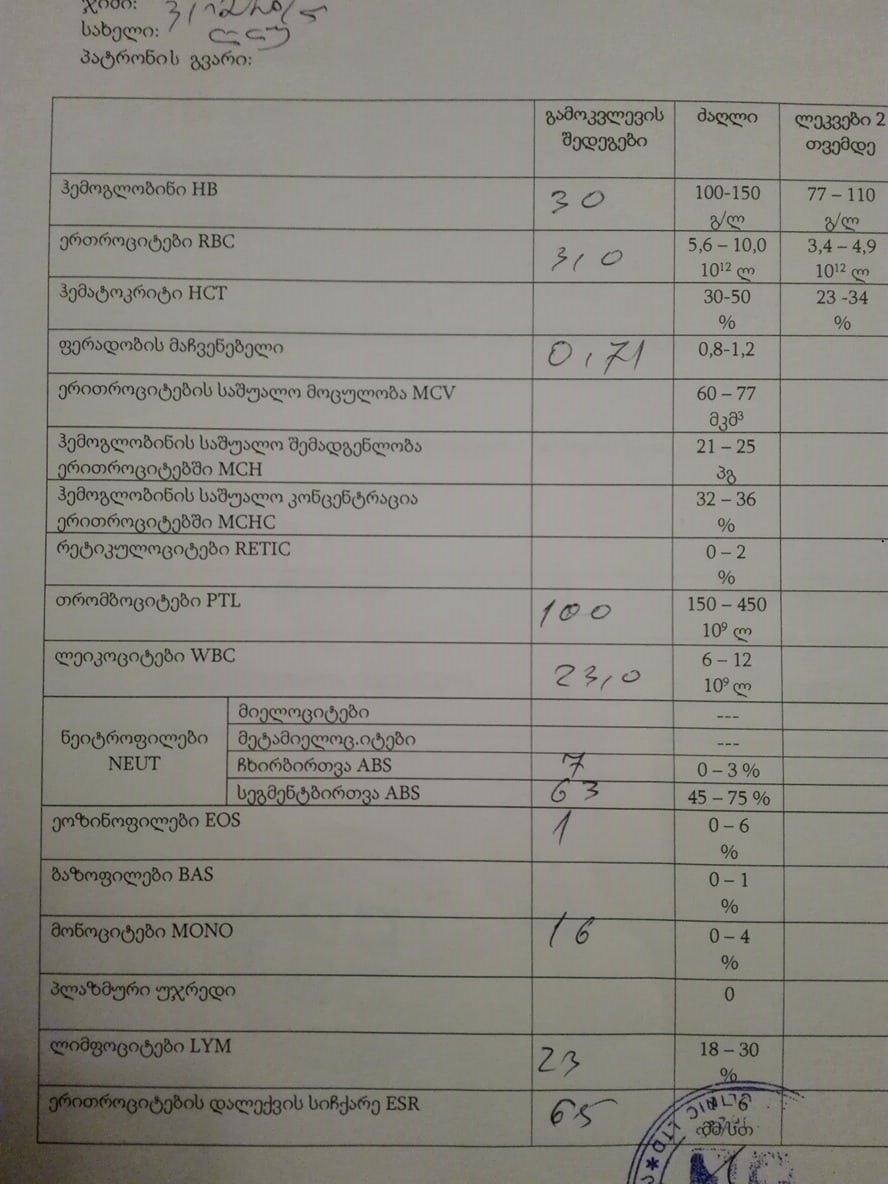 ჯიში:
სახელი:
პატრონის გვარი:
გამოკვლევის შედეგები ძაღლი ლეკვები 2 თვემდე
ჰემოგლობინი HB 30 100-150 გ/ლ 77 – 110 გ/ლ
ერთროციტები RBC 3,0 5,6 – 10,0 10¹² ლ 3,4 – 4,9 10¹² ლ
ჰემატოკრიტი HCT 30-50 % 23 -34 %
ფერადობის მაჩვენებელი 0,71 0,8-1,2
ერითროციტების საშუალო მოცულობა MCV 60 – 77 მკმ³
ჰემოგლობინის საშუალო შემადგენლობა
ერითროციტებში MCH 21 – 25 პგ
ჰემოგლობინის საშუალო კონცენტრაცია
ერითროციტებში MCHC 32 – 36 %
რეტიკულოციტები RETIC 0 – 2 %
თრომბოციტები PTL 100 150 – 450 10⁹ ლ
ლეიკოციტები WBC 23,0 6 – 12 10⁹ ლ
ნეიტროფილები NEUT
მიელოციტები ---
მეტამიელოც.იტები ---
ჩხირბირთვა ABS 7 0 – 3 %
სეგმენტბირთვა ABS 63 45 – 75 %
ეოზინოფილები EOS 1 0 – 6 %
ბაზოფილები BAS 0 – 1 %
მონოციტები MONO 16 0 – 4 %
პლაზმური უჯრედი 0
ლიმფოციტები LYM 23 18 – 30 %
ერითროციტების დალექვის სიჩქარე ESR 65 6 მმ/სთ
CLINIC LTD